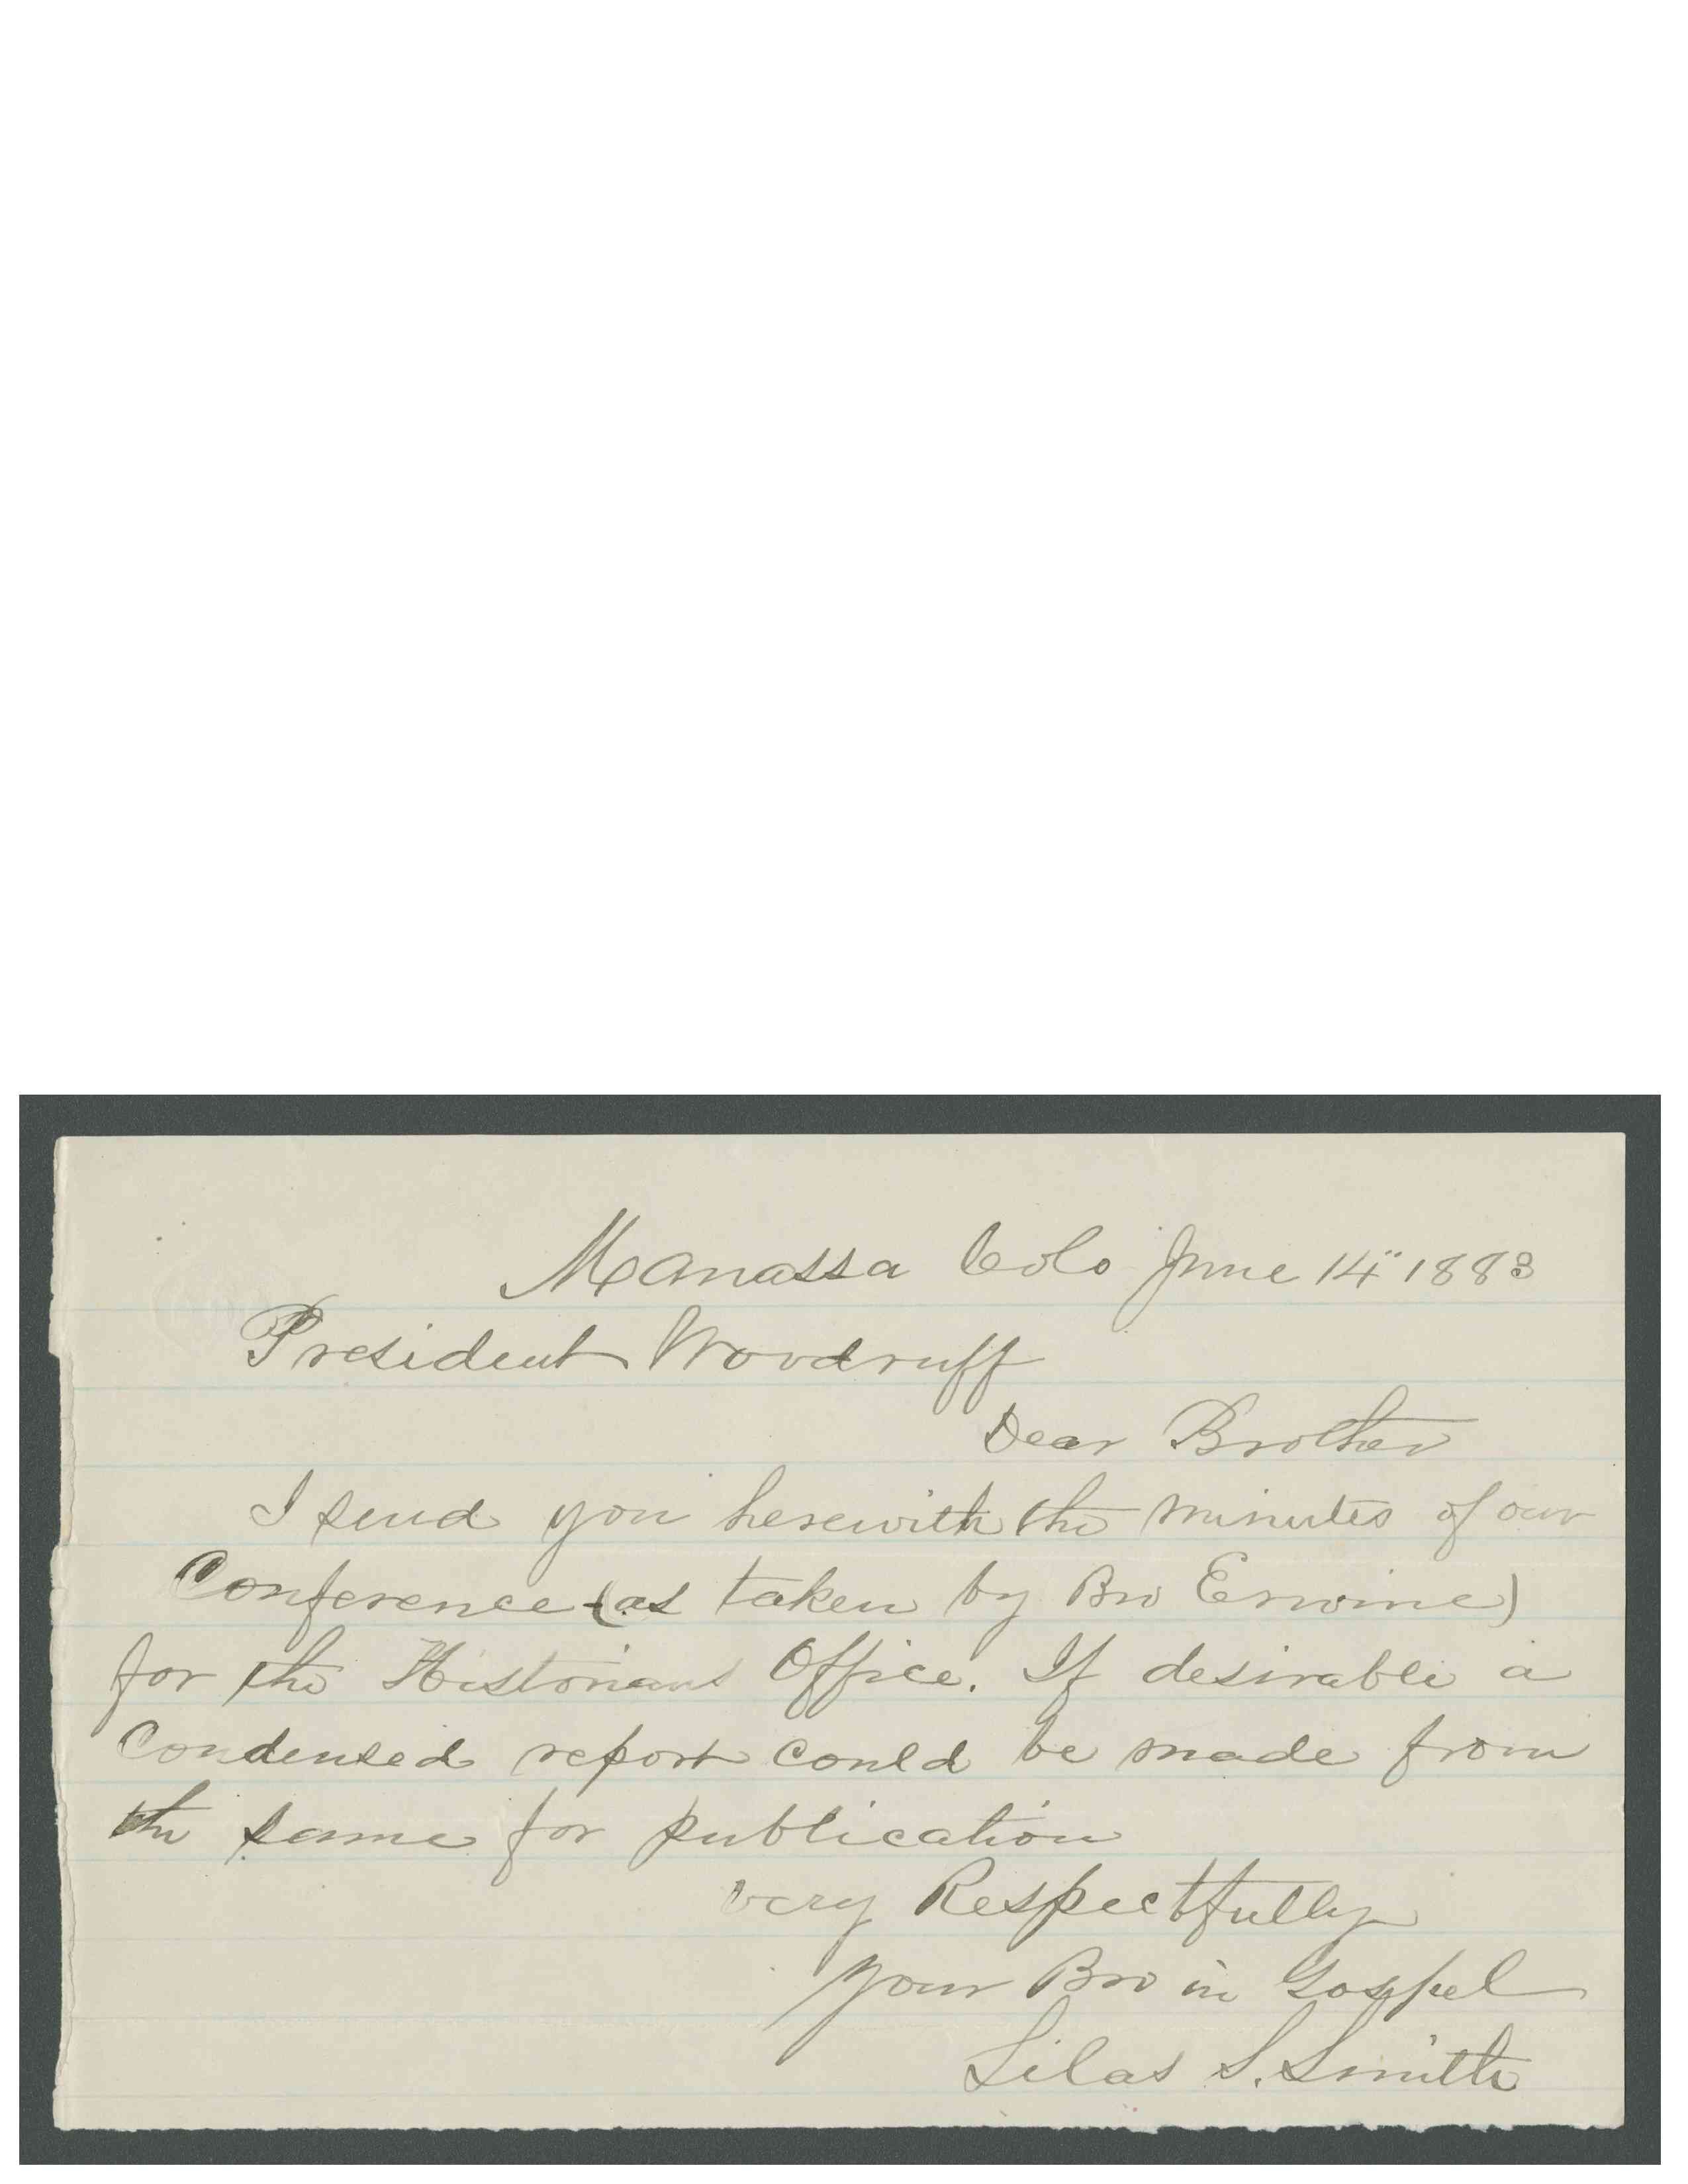 Manassa Colo June 14" 1883
President Woodruff
Dear Brother
I send you herewith the minutes of our
Conference (as taken by Bro Erwine)
for the Historians Office. If desirable a
Condensed report could be made from
the same for publication
very Respectfully
Your Bro in Gospel
Silas S. Smith